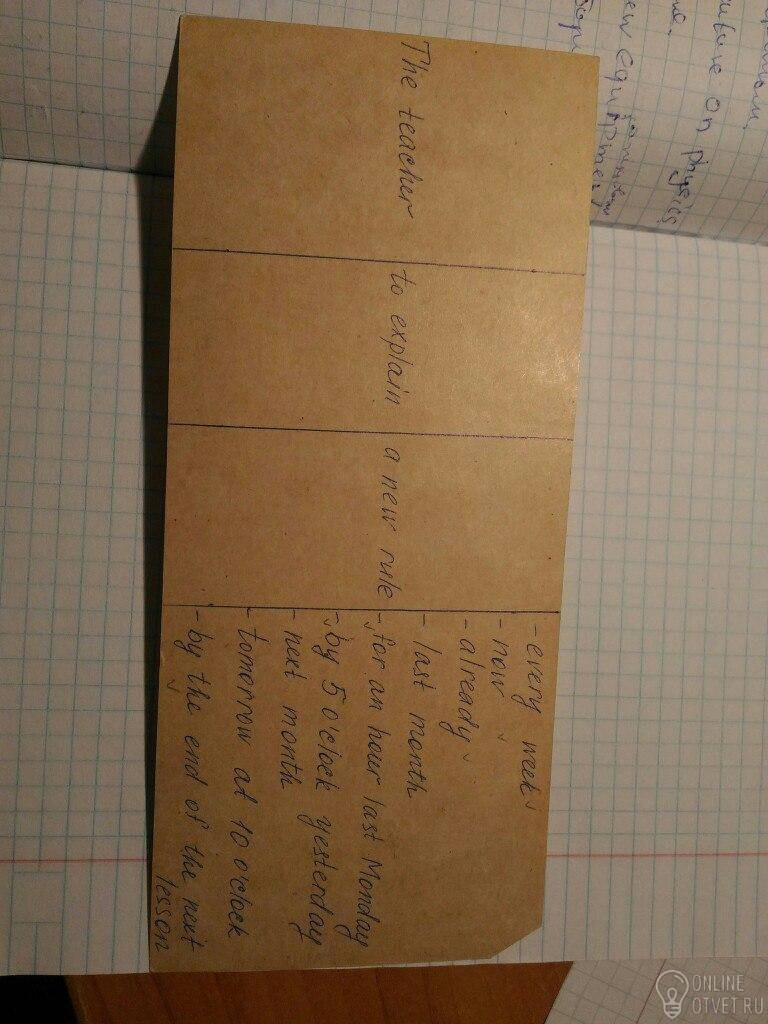 The teacher to explain a new rule
- every week
- now
- already
- last month
- for an hour last Monday
- by 5 o'clock yesterday
- next month
- tomorrow at 10 o'clock
- by the end of the next
lesson
on physics
ONLINE
OTVET RU